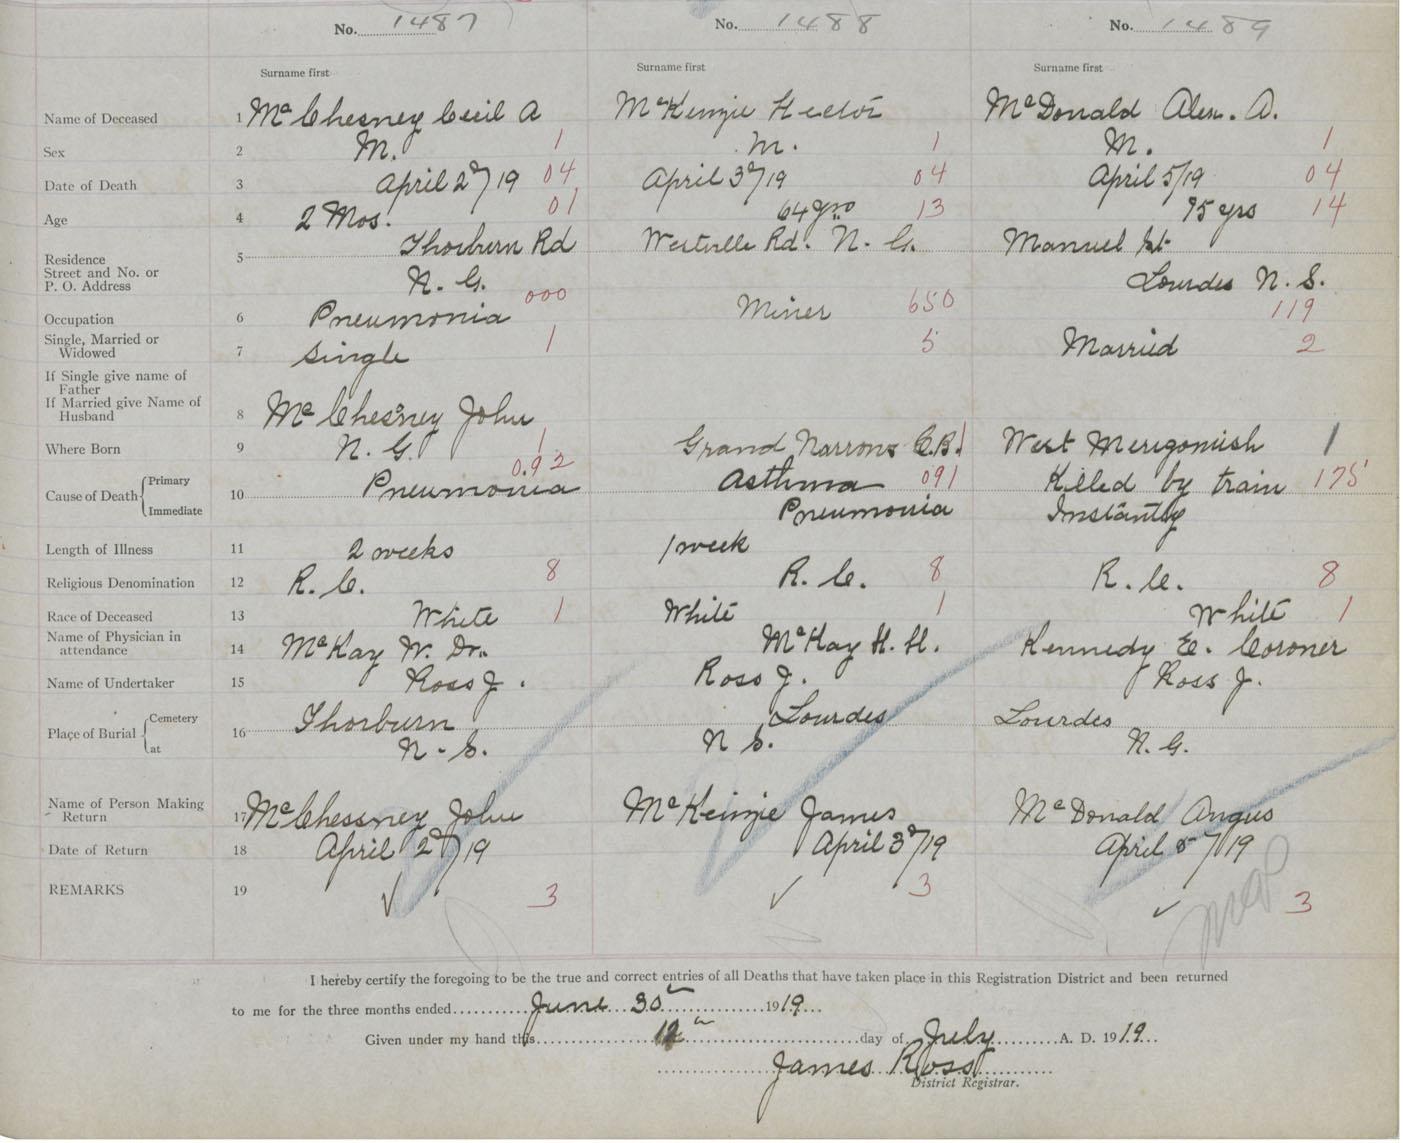 No. 1487 No. 1488 No. 1489
Surname first Surname first Surname first
Name of Deceased 1 McChesney Cecil A McKenzie Hector McDonald Alex. A.
Sex 2 M. 1 M. 1 M. 1
Date of Death 3 April 2d/19 04 April 3d/19 04 April 5/19 04
Age 4 2 Mos. 01 64 yrs 13 75 yrs 14
Residence
Street and No. or
P. O. Address
5 Thorburn Rd Westville Rd. N. G. Manuel St
N. G. Lourdes N. S.
Occupation 6 Pneumonia 000 Miner 650 119
Single, Married or
Widowed
7 Single 1 5 Married 2
If Single give name of
Father
If Married give Name of
Husband
8 McChesney John
Where Born 9 N. G. 1 Grand Narrows C.B. 1 West Merigomish 1
Cause of Death Primary
Immediate
10 Pneumonia 092 Asthma 091 Killed by train 175
Pneumonia Instantly
Length of Illness 11 2 weeks 1 week
Religious Denomination 12 R. C. 8 R. C. 8 R. C. 8
Race of Deceased 13 White 1 White 1 White 1
Name of Physician in
attendance
14 McKay W. Dr. McKay H. H. Kennedy E. Coroner
Name of Undertaker 15 Ross J. Ross J. Ross J.
Place of Burial Cemetery
at
16 Thorburn Lourdes Lourdes
N. S. N S. N. G.
Name of Person Making
Return
17 McChessney John McKenzie James McDonald Angus
Date of Return 18 April 2d/19 April 3d/19 April 5/19
REMARKS 19 ✓ 3 ✓ 3 ✓ 3
I hereby certify the foregoing to be the true and correct entries of all Deaths that have taken place in this Registration District and been returned
to me for the three months ended June 30th 1919
Given under my hand this day of July A. D. 1919
James Ross
District Registrar.